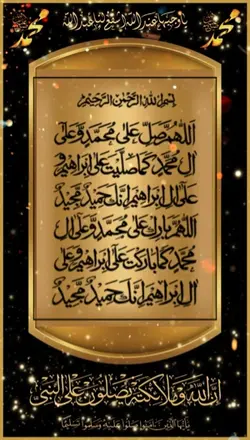 يا وجيها عند الله اشفع لنا عند الله
محمد ﷺ
محمد ﷺ
بسم الله الرحمن الرحيم
اللهم صل على محمد وعلى
ال محمد كما صليت على ابراهيم و
على ال ابراهيم انك حميد مجيد
اللهم بارك على محمد وعلى ال
محمد كما باركت على ابراهيم وعلى
ال ابراهيم انك حميد مجيد
ان الله وملائكته يصلون على النبي
يا ايها الذين امنوا صلوا عليه وسلموا تسليما